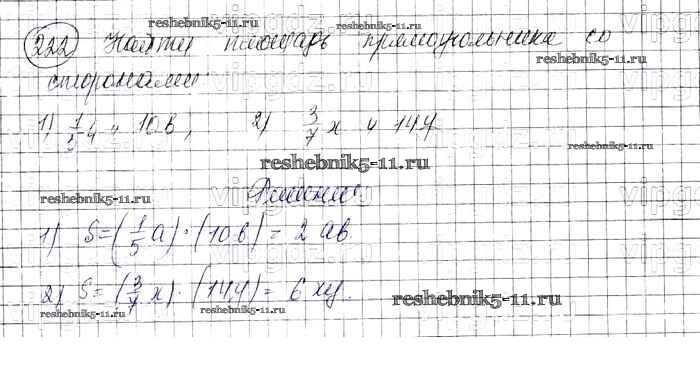 222 Найти площадь прямоугольника со
сторонами:
1) 1/5 a и 10 b, 2) 3/7 x и 14 y
Решение:
1) S = (1/5 a) · (10 b) = 2 ab.
2) S = (3/7 x) · (14 y) = 6 xy.
reshebnik5-11.ru
reshebnik5-11.ru
reshebnik5-11.ru
reshebnik5-11.ru
reshebnik5-11.ru
reshebnik5-11.ru
reshebnik5-11.ru
reshebnik5-11.ru